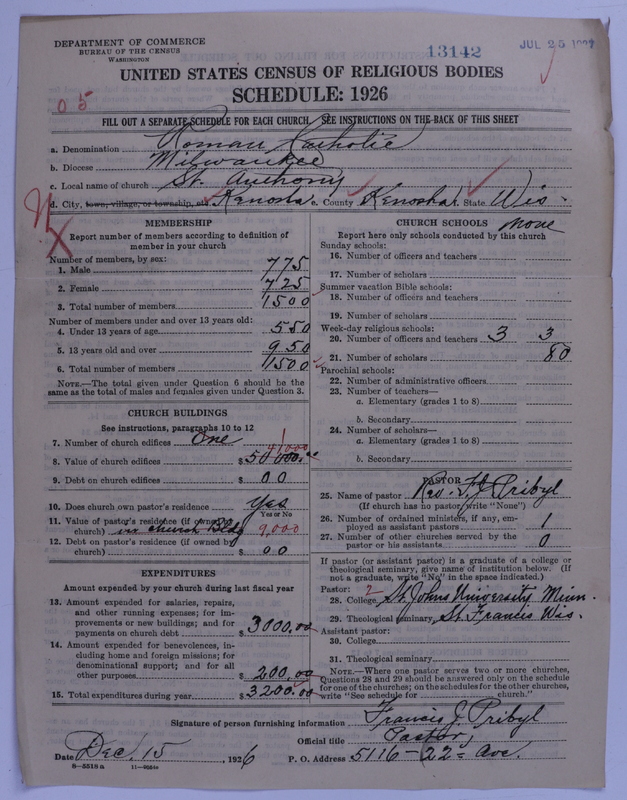 DEPARTMENT OF COMMERCE
BUREAU OF THE CENSUS
WASHINGTON
13142
JUL 25 1927
UNITED STATES CENSUS OF RELIGIOUS BODIES
SCHEDULE: 1926
05
FILL OUT A SEPARATE SCHEDULE FOR EACH CHURCH. SEE INSTRUCTIONS ON THE BACK OF THIS SHEET
a. Denomination Roman Catholic
b. Diocese Milwaukee
c. Local name of church St. Anthony
d. City, town, village, or township, etc. Kenosha e. County Kenosha f. State Wis.
MEMBERSHIP
Report number of members according to definition of member in your church
Number of members, by sex:
1. Male 775
2. Female 725
3. Total number of members 1500
Number of members under and over 13 years old:
4. Under 13 years of age 550
5. 13 years old and over 950
6. Total number of members 1500
NOTE.—The total given under Question 6 should be the same as the total of males and females given under Question 3.
CHURCH BUILDINGS
See instructions, paragraphs 10 to 12
7. Number of church edifices One 1
41000
8. Value of church edifices $50000.00
9. Debt on church edifices $00
10. Does church own pastor's residence Yes
Yes or No
11. Value of pastor's residence (if owned by church) in church Bldg 9,000
12. Debt on pastor's residence (if owned by church) $00
EXPENDITURES
Amount expended by your church during last fiscal year
13. Amount expended for salaries, repairs, and other running expenses; for improvements or new buildings; and for payments on church debt $3000.00
14. Amount expended for benevolences, including home and foreign missions; for denominational support; and for all other purposes $200.00
15. Total expenditures during year $3200.00
CHURCH SCHOOLS none
Report here only schools conducted by this church
Sunday schools:
16. Number of officers and teachers
17. Number of scholars
Summer vacation Bible schools:
18. Number of officers and teachers
19. Number of scholars
Week-day religious schools:
20. Number of officers and teachers 3 3
21. Number of scholars 80
Parochial schools:
22. Number of administrative officers
23. Number of teachers—
a. Elementary (grades 1 to 8)
b. Secondary
24. Number of scholars—
a. Elementary (grades 1 to 8)
b. Secondary
PASTOR
25. Name of pastor Rev. F.J. Pribyl
(If church has no pastor, write "None")
26. Number of ordained ministers, if any, employed as assistant pastors 1
27. Number of other churches served by the pastor or his assistants 0
If pastor (or assistant pastor) is a graduate of a college or theological seminary, give name of institution below. (If not a graduate, write "No" in the space indicated.)
Pastor: 2
28. College St. Johns University Minn.
29. Theological seminary St. Francis Wis.
Assistant pastor:
30. College
31. Theological seminary
NOTE.—Where one pastor serves two or more churches, Questions 28 and 29 should be answered only on the schedule for one of the churches; on the schedules for the other churches, write "See schedule for church."
Signature of person furnishing information Francis J. Pribyl
Official title Pastor,
Date Dec. 15, 1926 P. O. Address 5116-22= Ave.
8—5518a